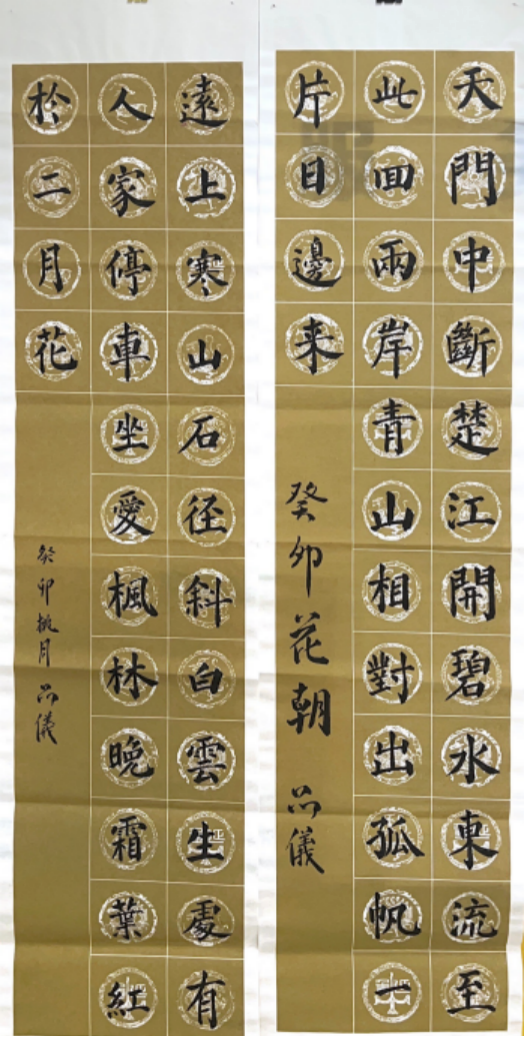 天門中斷楚江開碧水東流至
此回兩岸青山相對出孤帆一
片日邊来
癸卯花朝 品儀
遠上寒山石径斜白雲生處有
人家停車坐愛楓林晚霜葉紅
於二月花
癸卯桃月 品儀